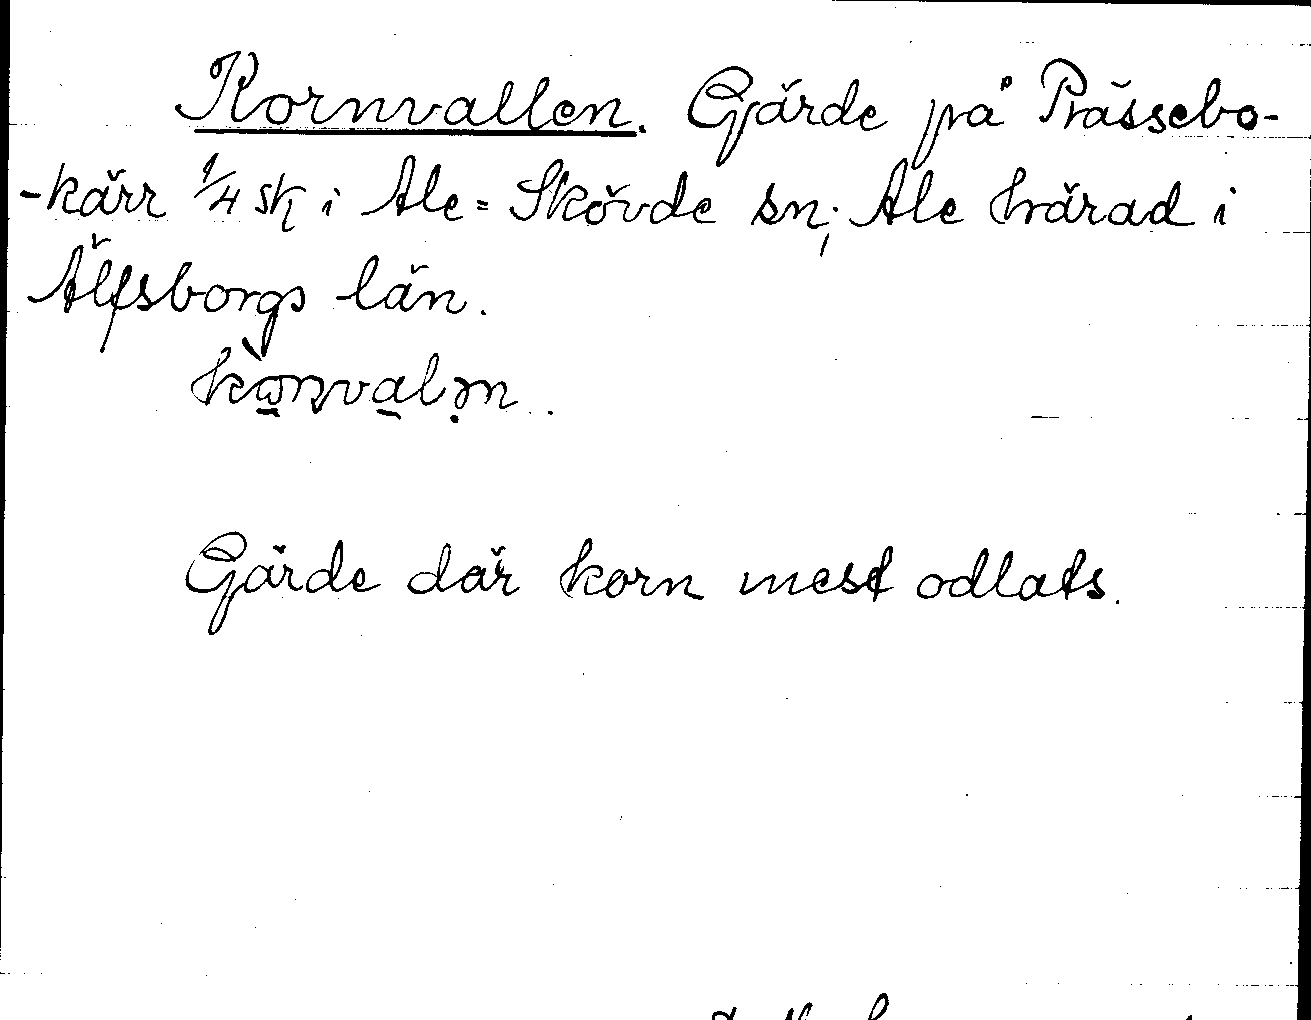 Kornvallen. Gärde på Prässebo-
-kärr 1/4 sk i Ale-Skövde sn; Ale härad i
Älfsborgs län.
Gärde där korn mest odlats.